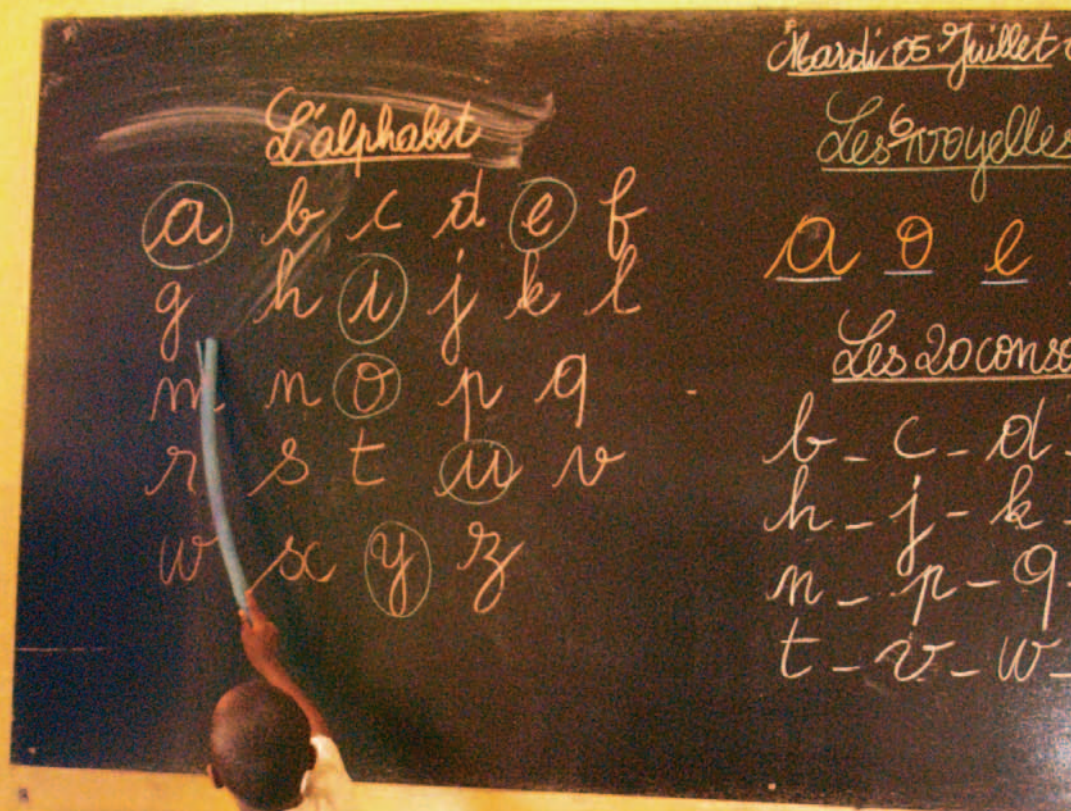 L'alphabet
a b c d e f
g h i j k l
m n o p q
r s t u v
w x y z
Mardi 05 Juillet
Les 6 voyelles
a o e
Les 20 conso
b - c - d -
h - j - k -
n - p - q -
t - v - w -